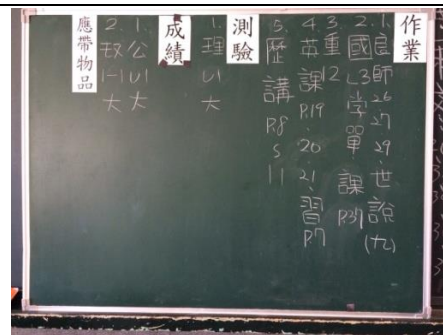 作業
1.良師26 27 29、世說(九)
2.國L3學單 課P.37
3.重12
4.英課P.19、20、21、習P.7
5.歷講P.8 S 11
測驗
1.理U1大
成績
1.公U1大
2.1-1大
應帶物品